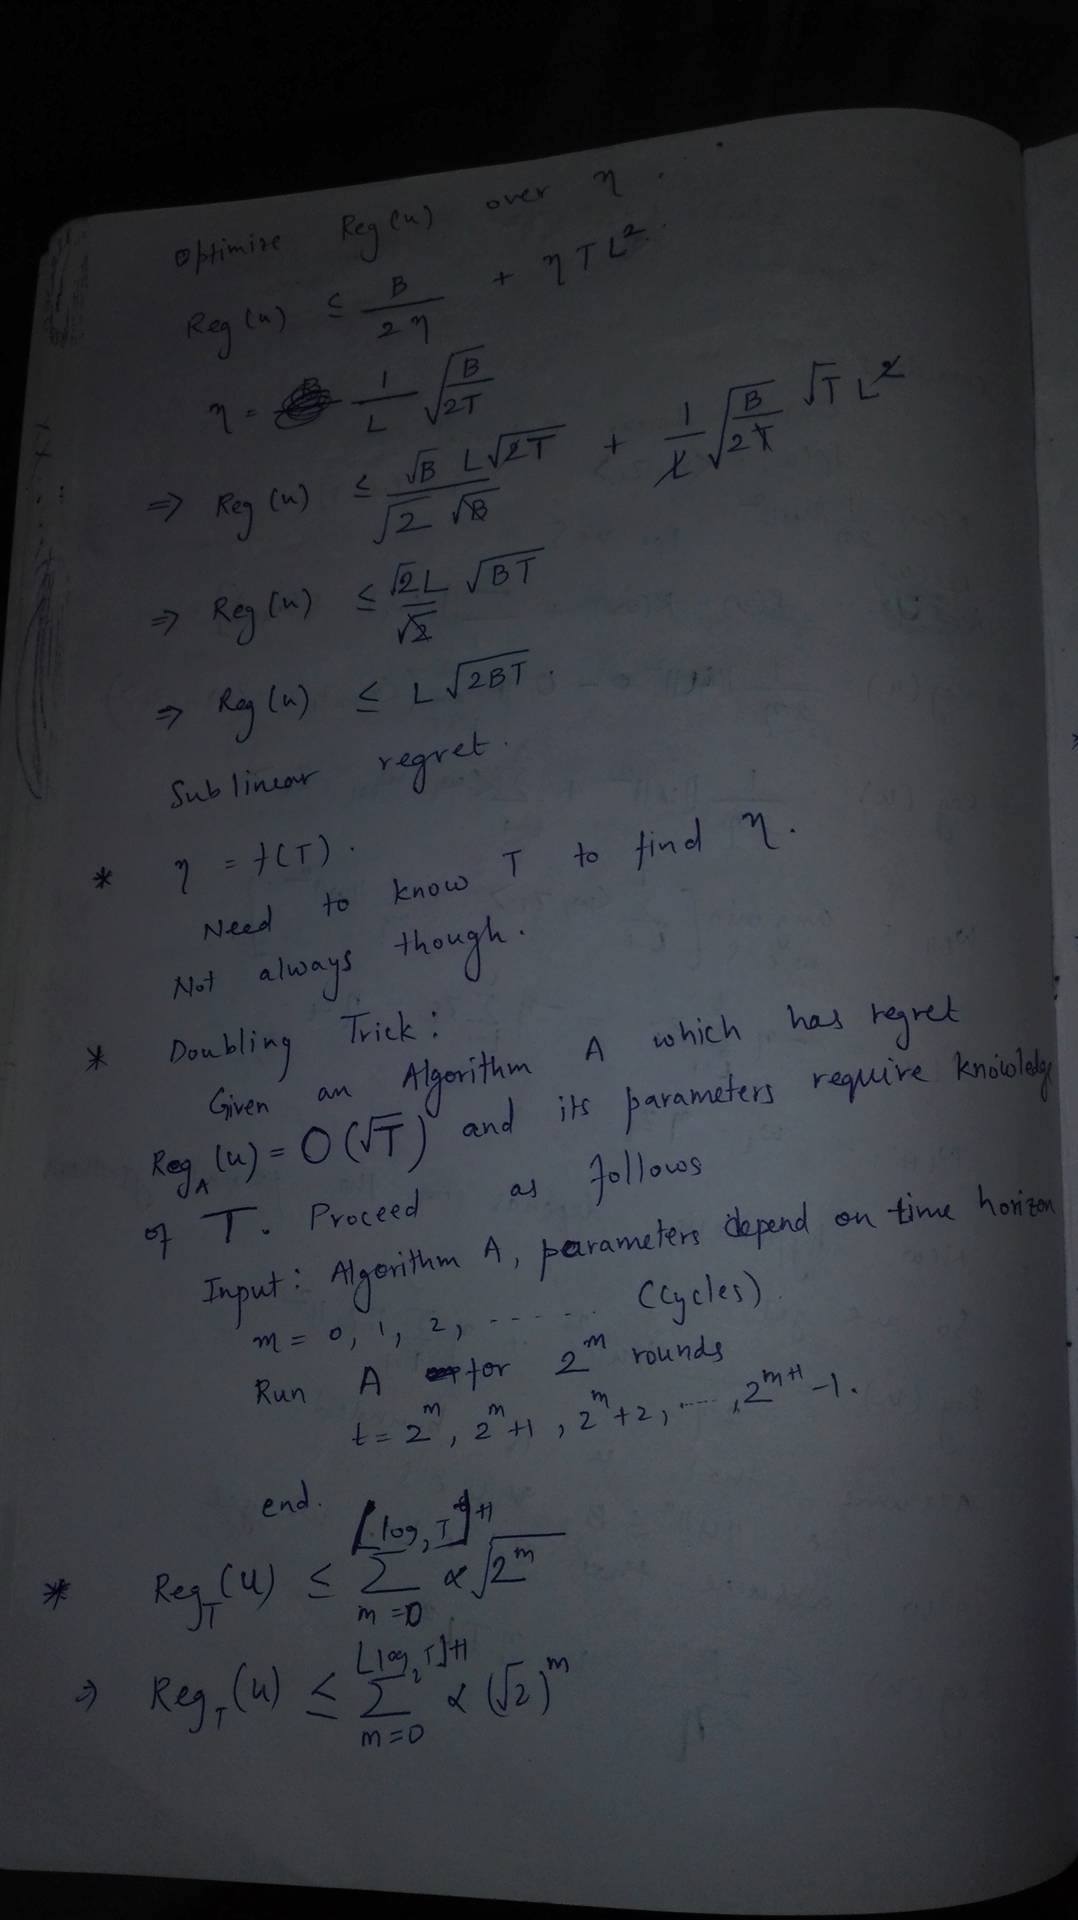 Optimize Reg(u) over η.
Reg(u) ≤ B/2η + ηTL².
η = 1/L √(B/2T)
⇒ Reg(u) ≤ √B L√2T / √2 √B + 1/L √(B/2T) √T L²
⇒ Reg(u) ≤ √2L/√2 √BT
⇒ Reg(u) ≤ L √2BT.
Sublinear regret.
* η = f(T).
Need to know T to find η.
Not always though.
* Doubling Trick:
Given an Algorithm A which has regret
Reg_A(u) = O(√T) and its parameters require knowledge
of T. Proceed as follows
Input: Algorithm A, parameters depend on time horizon
m = 0, 1, 2, ...... (cycles).
Run A for 2^m rounds
t = 2^m, 2^m+1, 2^m+2, ....., 2^{m+1}-1.
end.
* Reg_T(u) ≤ Σ_{m=0}^{⌊log₂T⌋+1} α√(2^m)
⇒ Reg_T(u) ≤ Σ_{m=0}^{⌊log₂T⌋+1} α(√2)^m